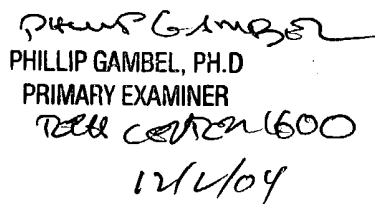 PHILLIP GAMBEL
PHILLIP GAMBEL, PH.D
PRIMARY EXAMINER
TECH CENTER 1600
12/2/04